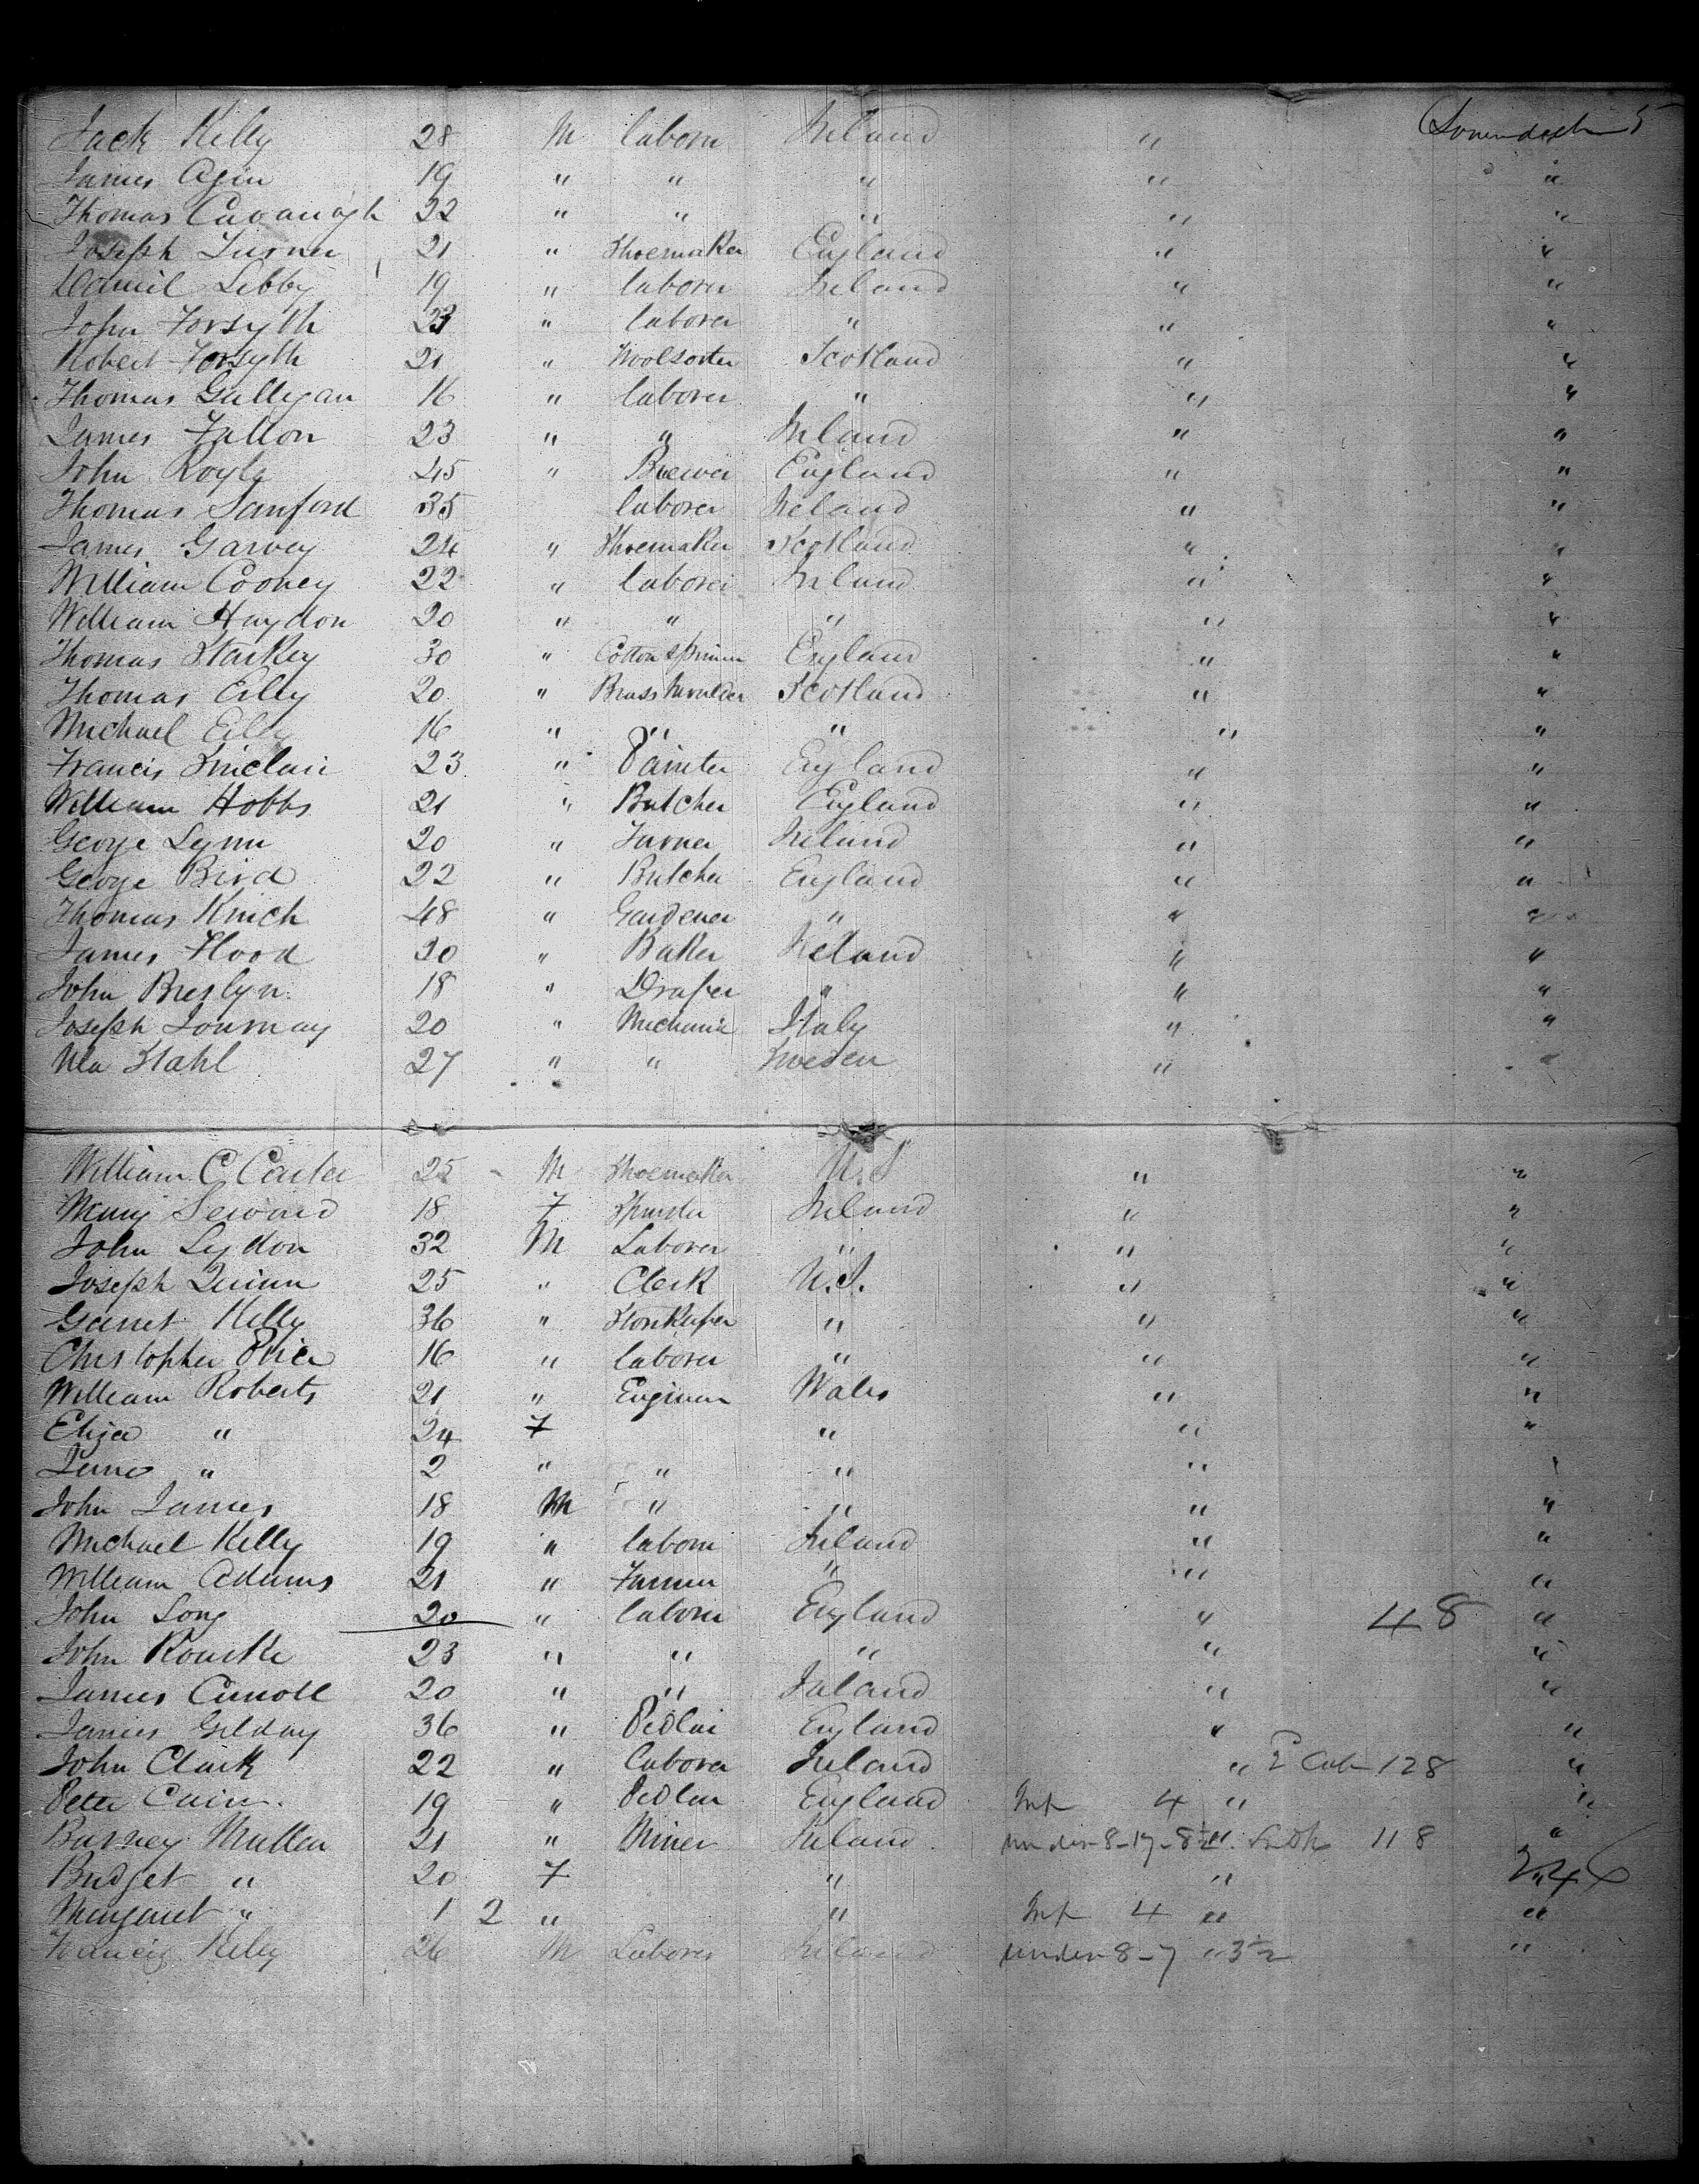 Jack Kelly 28 M laborer Ireland " Lowerdeck 5
James Agin 19 " " " " "
Thomas Cavanagh 22 " " " " "
Joseph Turner 21 " Shoemaker England " "
Daniel Libby 19 " laborer Ireland " "
John Forsyth 23 " laborer " " "
Robert Forsyth 21 " Woolsorter Scotland " "
Thomas Galligan 16 " laborer " " "
James Fallon 23 " " Ireland " "
John Royle 45 " Brewer England " "
Thomas Sanford 35 laborer Ireland " "
James Garvey 24 " Shoemaker Scotland " "
William Cooney 22 " laborer Ireland " "
William Haydon 20 " " " " "
Thomas Starkey 30 " Cotton Spinner England " "
Thomas Eily 20 " Brass Moulder Scotland " "
Michael Eily 16 " " " " "
Francis Sinclair 23 " Painter England " "
William Hobbs 21 " Butcher England " "
George Lynn 20 " Turner Ireland " "
George Bird 22 " Butcher England " "
Thomas Knich 48 " Gardener " " "
James Flood 20 " Baker Ireland " "
John Breslyn 18 " Draper " " "
Joseph 20 " Mechanic Italy " "
Stahl 27 " " Sweden " "
William C Carter 25 M Shoemaker U.S " "
Mary Seward 18 F Spinster Ireland " "
John Lydon 32 M Laborer " " "
Joseph Quinn 25 " Clerk U.S. " "
Garret Kelly 36 " Storekeeper " " "
Christopher Price 16 " laborer " " "
William Roberts 21 " Engineer Wales " "
Eliza " 24 F " " "
" 2 " " " "
John James 18 M " " " "
Michael Kelly 19 " laborer Ireland " "
William Adams 21 " Farmer " " "
John Long 20 " laborer England " 48 "
John Rourke 23 " " " " "
James Carroll 20 " " Ireland " "
James Gilday 36 " Pedlar England " "
John Clark 22 " laborer Ireland " 2 Cab 128 "
Peter Cairn 19 " Pedlar England Inf 4 " "
Barney Mullen 21 " Miner Ireland under 8-17-8½ 118 "
Bridget " 20 F " " 246
Margaret " 1 2 " " Inf 4 " "
Francis Kelly 26 M Laborer Ireland under 8-7 " 3½ "